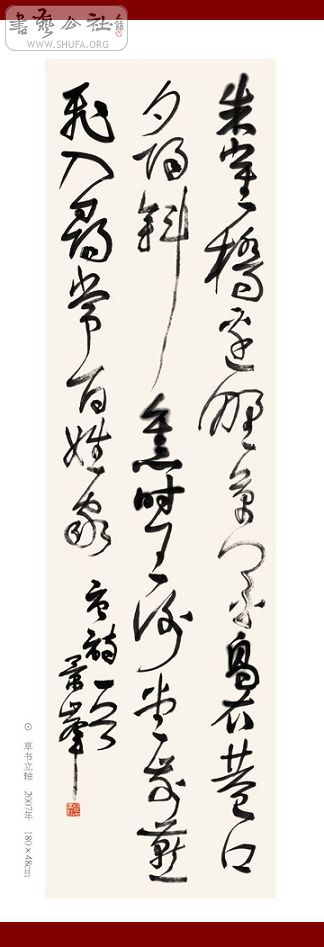 書藝公社
WWW.SHUFA.ORG
朱雀橋邊野草花烏衣巷口
夕陽斜舊時王謝堂前燕
飛入尋常百姓家
唐詩一首
景峯
⊙ 草书立轴 2007年 180×48cm